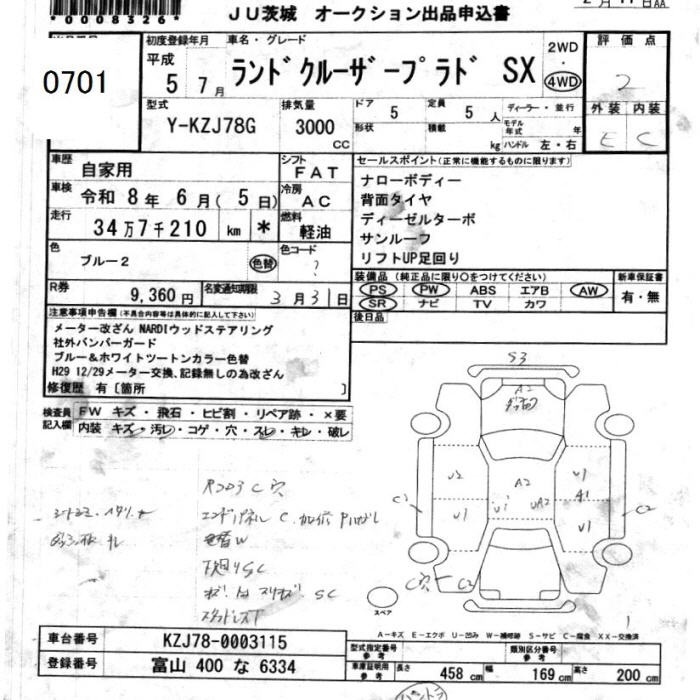 *0008326*
JU茨城 オークション出品申込書
0701
初度登録年月
平成
5 7月
車名・グレード
ランドクルーザープラド SX
2WD
・
4WD
評価点
2
外装 内装
E C
型式
Y-KZJ78G
排気量
3000
CC
ドア 5
形状
定員 5 人
積載 kg
ディーラー・並行
モデル年式 年
ハンドル 左・右
車歴
自家用
シフト
FAT
車検
令和 8年 6月(5日)
冷房
AC
走行
34万7千210 km *
燃料
軽油
色
ブルー2
色替
色コード
?
R券
9,360円
名変通知期限
3月31日
セールスポイント(正常に機能するものに限ります)
ナローボディー
背面タイヤ
ディーゼルターボ
サンルーフ
リフトUP足回り
装備品(純正品に限り○をつけてください)
PS PW ABS エアB AW
SR ナビ TV カワ
新車保証書
有・無
後日品
注意事項申告欄(不具合内容等は具体的に記入して下さい)
メーター改ざん NARDIウッドステアリング
社外バンパーガード
ブルー&ホワイトツートンカラー色替
H29 12/29メーター交換、記録無しの為改ざん
修復歴 有〔箇所 〕
検査員記入欄
FW キズ・飛石・ヒビ割・リペア跡・×要
内装 キズ・汚レ・コゲ・穴・スレ・キレ・破レ
S3
A2
U2
U1
A2
U1
A1
C1
U1
U1
UA2
U1
C2
C穴
C2
スペア
色替W
下廻りSC
SC
A-キズ E-エクボ U-凹み W-補修跡 S-サビ C-腐食 XX-交換済
車台番号
KZJ78-0003115
登録番号
富山 400 な 6334
型式指定番号
参考
類別区分番号
参考
車体証明用
参考
長さ 458 cm 幅 169 cm 高さ 200 cm